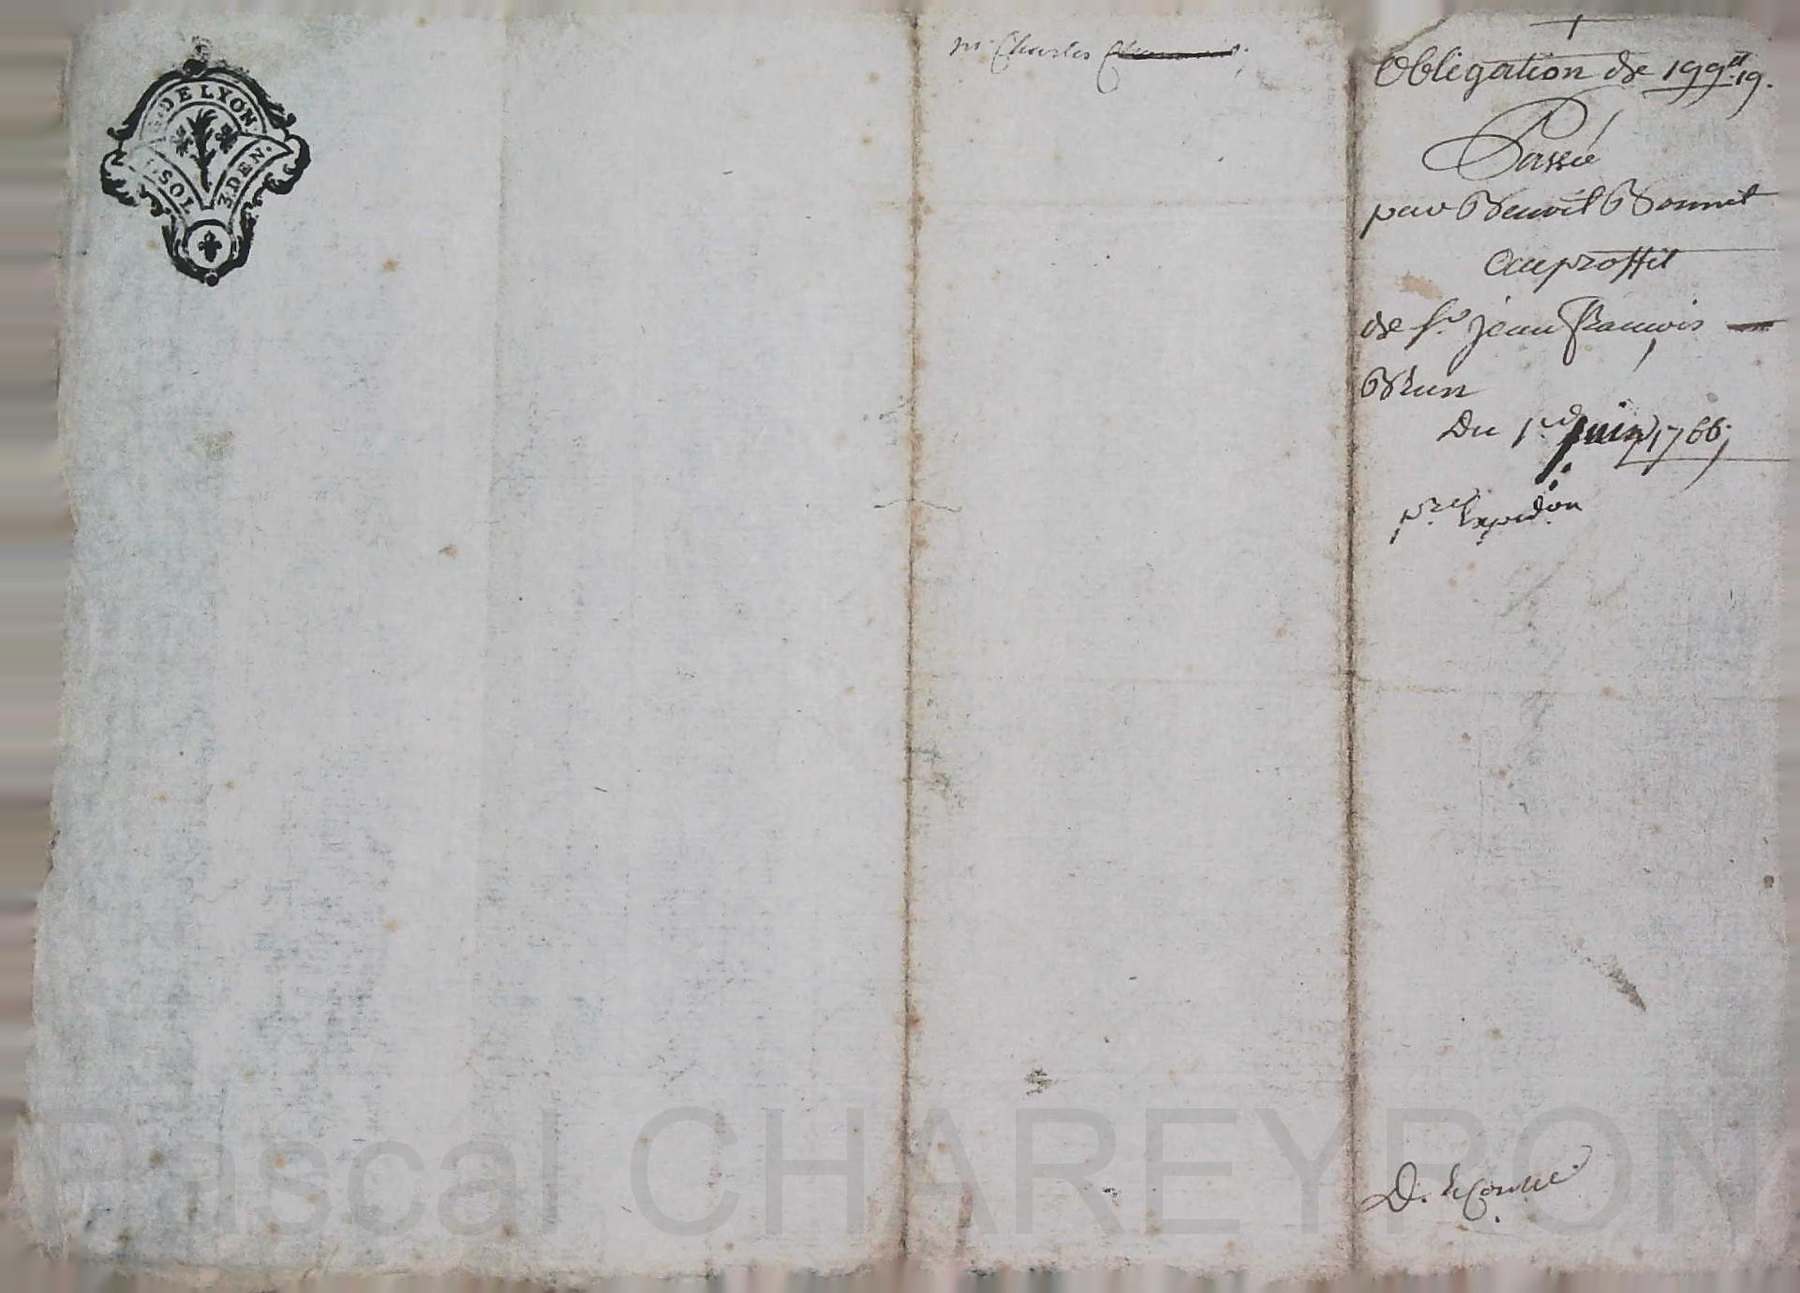 G. DE LYON
1. SOL 3. DEN.
mr. Charles
Obligation de 199tt. 19.
Passée
par Benoit Bonnet
au proffit
de Sr. jean François
Brun
Du 1er juin 1766.
pre. Expedon
D.
Pascal CHAREYRON